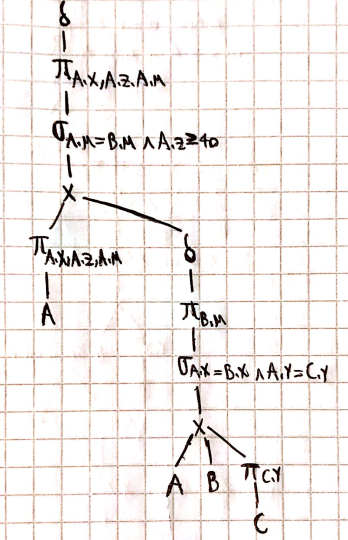 δ
π A.X, A.Z, A.M
σ A.M = B.M ∧ A.Z ≥ 40
X
π A.X, A.Z, A.M
δ
A
π B.M
σ A.X = B.X ∧ A.Y = C.Y
X
A B π C.Y
C